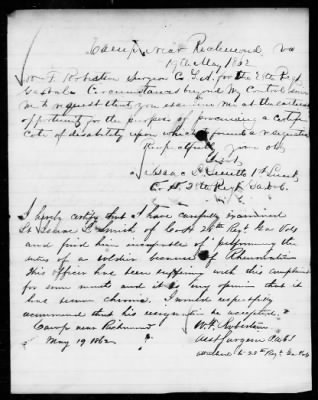 Camp near Richmond Va
19th May 1862
Wm F. Robertson Surgeon C.S.A. for the 28th Regt
Ga Vols Circumstances beyond my Control
me to request that you examine me at the earliest
opportunity for the purpose of procuring a certifi
cate of disability upon which to found a resignation
Respectfully your obt
Servt
Isaac S. Smith 1st Lieut
Co H 28th Regt Ga Vols
I hereby certify that I have carefully examined
Lt Isaac S. Smith of Co H 28th Regt Ga Vols
and find him incapable of performing the
duties of a soldier because of Rheumatism
This officer has been suffering with this complaint
for some months and it is my opinion that it
has become chronic. I would respectfully
recommend that his resignation be accepted.
Camp near Richmond
May 19 1862
W. F. Robertson
Asst Surgeon P.A.C.S
attached to 28th Regt Ga Vols